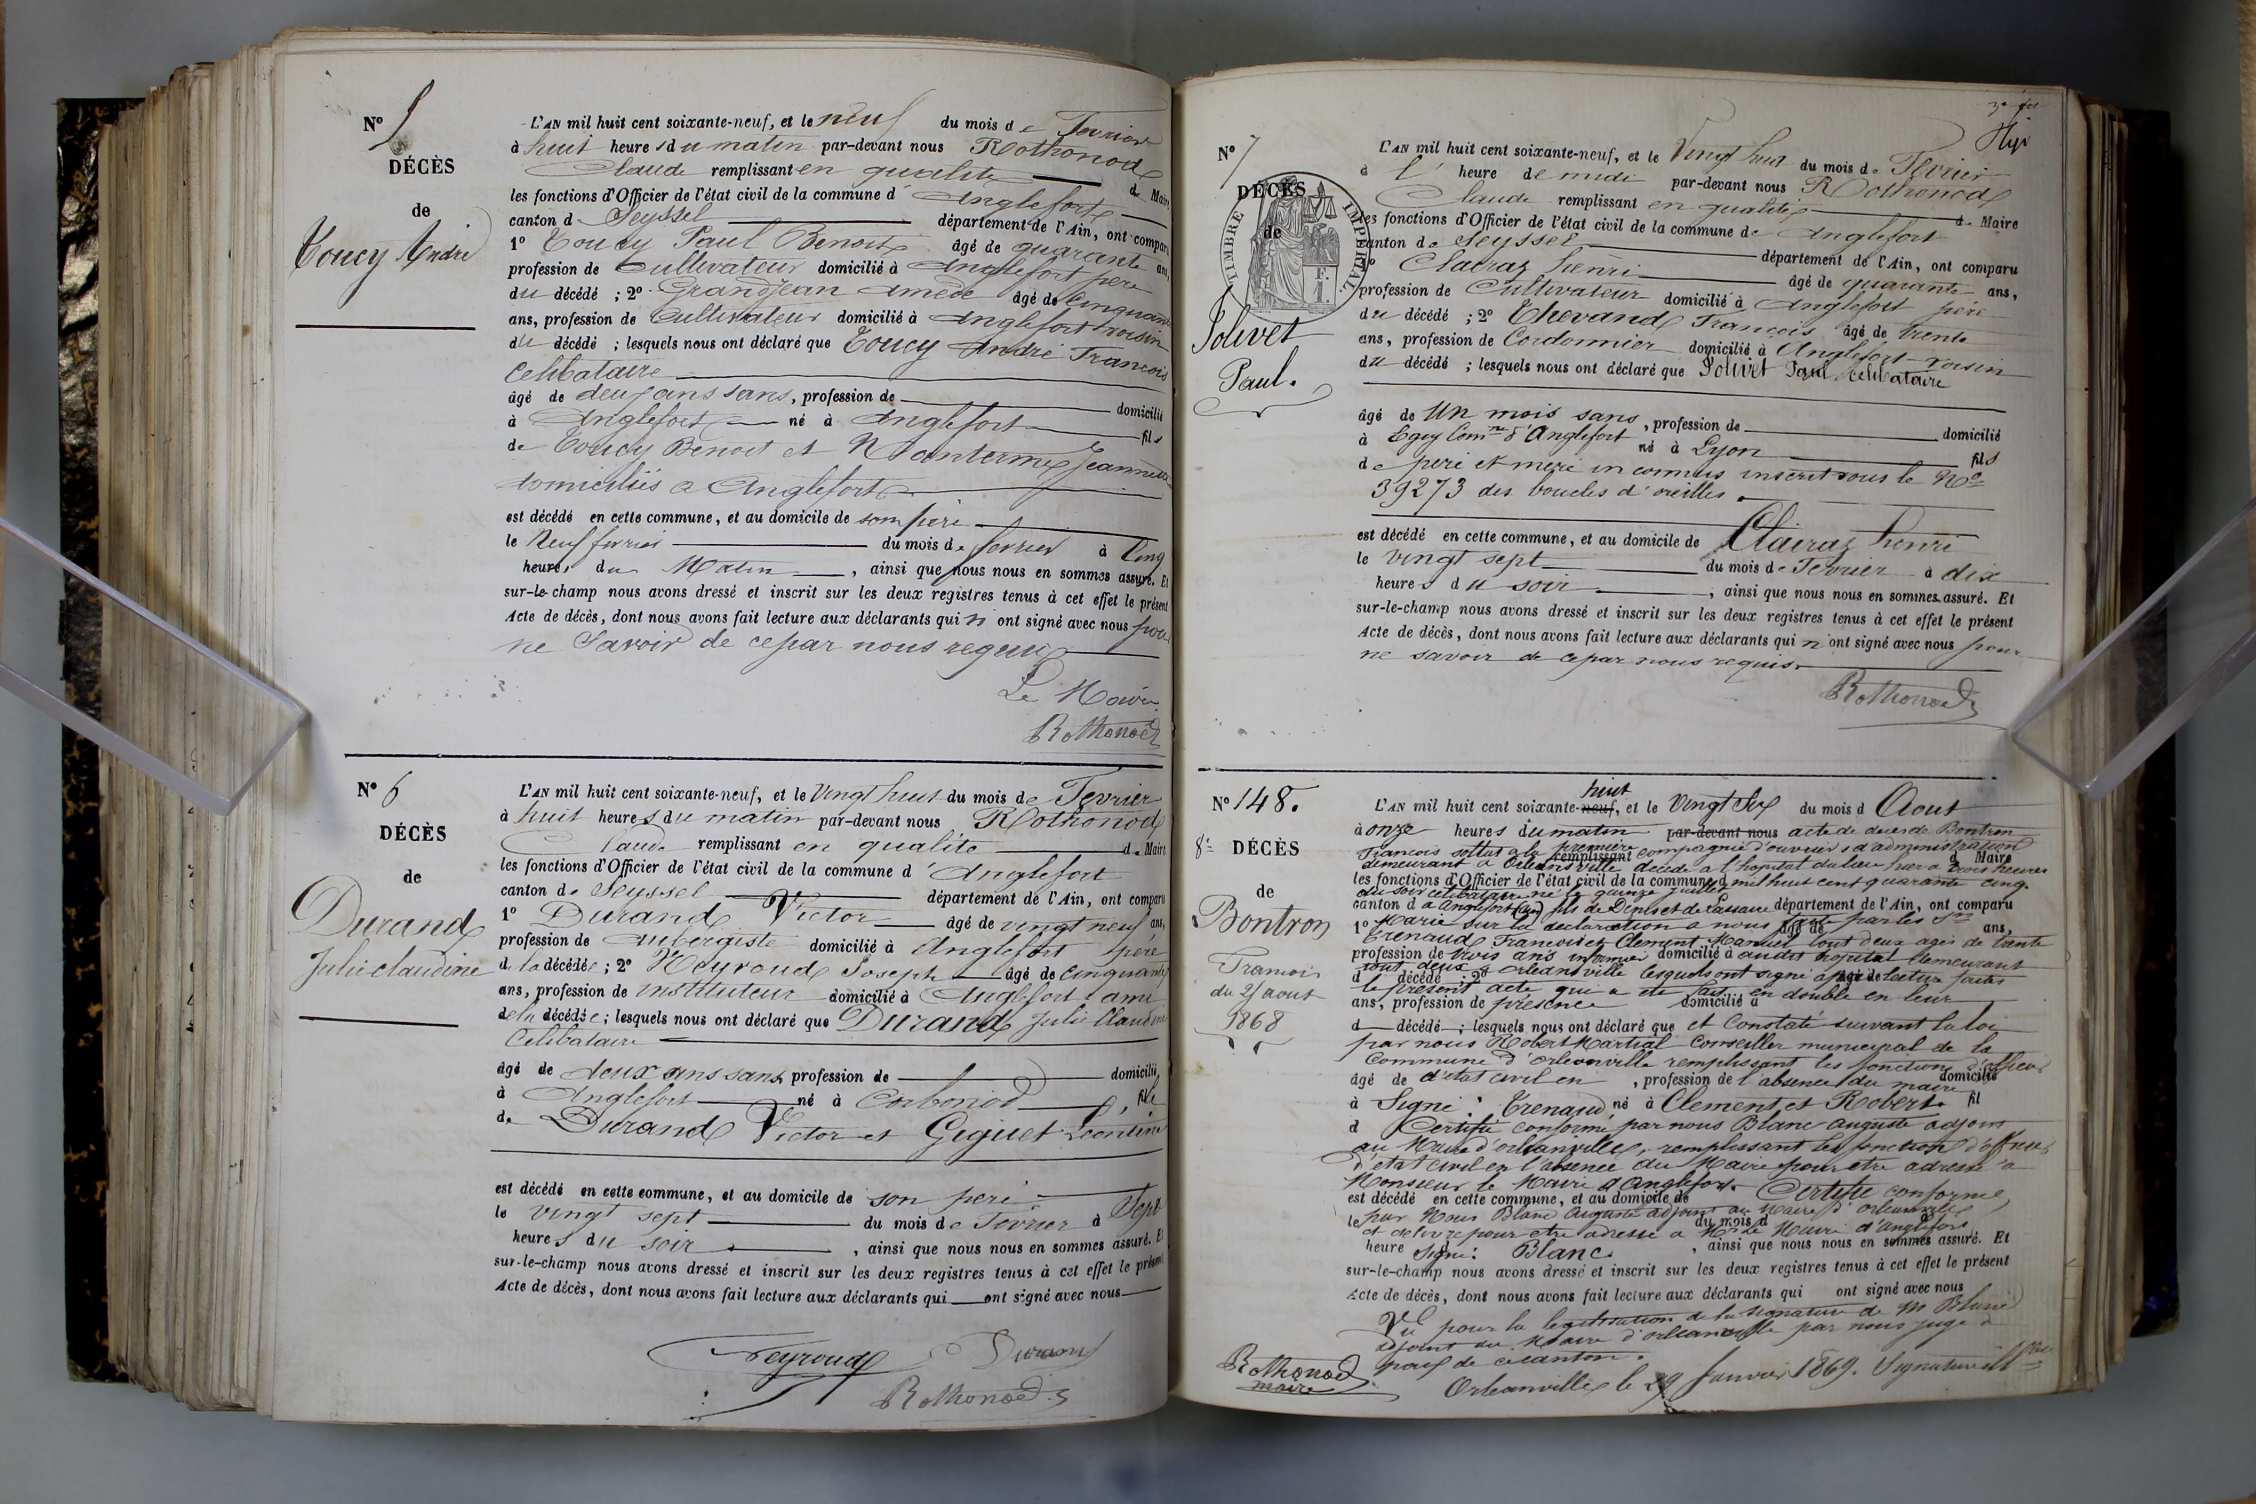 N° 5
DÉCÈS
de
Toucy André
L'AN mil huit cent soixante-neuf, et le neuf du mois de Fevrier
à huit heures du matin par-devant nous Rothonod
Claude remplissant en qualité de Maire
les fonctions d'Officier de l'état civil de la commune d' Anglefort
canton de Seyssel département de l'Ain, ont comparu
1° Toucy Paul Benoit âgé de quarante ans,
profession de Cultivateur domicilié à Anglefort pere
du décédé ; 2° Grandjean Amédé âgé de Cinquante
ans, profession de Cultivateur domicilié à Anglefort voisin
du décédé ; lesquels nous ont déclaré que Toucy André Francois
Celibataire
âgé de deux ans sans, profession de domicilié
à Anglefort né à Anglefort fils
de Toucy Benoit et Jeannette
domiciliés a Anglefort
est décédé en cette commune, et au domicile de son pere
le Neuf fevrier du mois de fevrier à Cinq
heures du Matin, ainsi que nous nous en sommes assuré. Et
sur-le-champ nous avons dressé et inscrit sur les deux registres tenus à cet effet le présent
Acte de décès, dont nous avons fait lecture aux déclarants qui n' ont signé avec nous pour
ne Savoir de ce par nous requis
Le Maire
Rothonod
N° 6
DÉCÈS
de
Durand
Julie claudine
L'AN mil huit cent soixante-neuf, et le Vingt huit du mois de Fevrier
à huit heures du matin par-devant nous Rothonod
Claude remplissant en qualité de Maire
les fonctions d'Officier de l'état civil de la commune d' Anglefort
canton de Seyssel département de l'Ain, ont comparu
1° Durand Victor âgé de vingt neuf ans,
profession de Aubergiste domicilié à Anglefort pere
de la décédée ; 2° Neyroud Joseph âgé de Cinquante
ans, profession de instituteur domicilié à Anglefort ami
de la décédée ; lesquels nous ont déclaré que Durand Julie Claudine
Celibataire
âgé de deux ans sans, profession de domicilié
à Anglefort né à Corbonod, fille
de Durand Victor et Giguet Leontine
est décédé en cette commune, et au domicile de son pere
le vingt sept du mois de Fevrier à Sept
heures du soir, ainsi que nous nous en sommes assuré. Et
sur-le-champ nous avons dressé et inscrit sur les deux registres tenus à cet effet le présent
Acte de décès, dont nous avons fait lecture aux déclarants qui ont signé avec nous
Neyroud Durand
Rothonod
N° 7
DÉCÈS
de
TIMBRE IMPÉRIAL
Jolivet
Paul.
L'AN mil huit cent soixante-neuf, et le Vingt huit du mois de Fevrier
à l' heure de midi par-devant nous Rothonod
Claude remplissant en qualité de Maire
les fonctions d'Officier de l'état civil de la commune de Anglefort
canton de Seyssel département de l'Ain, ont comparu
1° Clairaz henri âgé de quarante ans,
profession de Cultivateur domicilié à Anglefort père
du décédé ; 2° Thevand François âgé de trente
ans, profession de Cordonnier domicilié à Anglefort voisin
du décédé ; lesquels nous ont déclaré que Jolivet Paul celibataire
âgé de un mois sans, profession de domicilié
à Egey Comne d'Anglefort né à Lyon fils
de pere et mere inconnus inscrit sous le No
39273 des boucles d'oreilles
est décédé en cette commune, et au domicile de Clairaz henri
le vingt sept du mois de Fevrier à dix
heures du soir, ainsi que nous nous en sommes assuré. Et
sur-le-champ nous avons dressé et inscrit sur les deux registres tenus à cet effet le présent
Acte de décès, dont nous avons fait lecture aux déclarants qui n'ont signé avec nous pour
ne savoir de ce par nous requis.
Rothonod
N° 148.
8e DÉCÈS
de
Bontron
Francois
du 25 aout
1868
huit
L'AN mil huit cent soixante-neuf, et le Vingt Six du mois d Aout
à onze heures du matin par-devant nous acte de deces de Bontron
Francois soldat a la première remplissant compagnie d'ouvriers d'administration d Maire
demeurant a Orleansville décédé a l'hopital du lieu hier a trois heures
les fonctions d'Officier de l'état civil de la commune d mil huit cent quarante cinq
du soir celibataire né le quinze juillet
canton d a Anglefort (Ain) fils de Denis et de Lassaue département de l'Ain, ont comparu
1° Marie sur la declaration a nous faite par les Srs âgé de ans,
Trenaud Francois et Clement Manuel tout deux agés de trente
profession de trois ans infirmier domicilié à audit hopital demeurant
tout deux a Orleansville lesquels ont signé après lecture faite
d décédé ; 2° âgé de
le present acte qui a été fait en double en leur
ans, profession de présence domicilié à
d décédé ; lesquels nous ont déclaré que et Constaté suivant la loi
par nous Robert Martial Conseiller municipal de la
Commune d'Orleansville remplissant les fonctions d'officier
âgé de d'etat civil en, profession de l'absence du maire domicilié
à Signé : Trenaud né à Clement et Robert fil
d Certifié conforme par nous Blanc auguste adjoint
au Maire d'orleansville, remplissant les fonction d'officier
d'etat civil en l'absence du Maire pour etre adressé a
Monsieur le Maire d'Anglefort. Certifié conforme
est décédé en cette commune, et au domicile de
le par Nous Blanc Auguste adjoint au Maire d'orleansville
du mois d à
et delivré pour etre adressé a Mr le Maire d'anglefort
heure Signé : Blanc, ainsi que nous nous en sommes assuré. Et
sur-le-champ nous avons dressé et inscrit sur les deux registres tenus à cet effet le présent
Acte de décès, dont nous avons fait lecture aux déclarants qui ont signé avec nous
Vu pour la legalisation de la signature de M Blanc
adjoint au Maire d'orleansville par nous juge de
paix de ce canton.
Orleanville le 29 Janvier 1869. Signature
Rothonod
maire